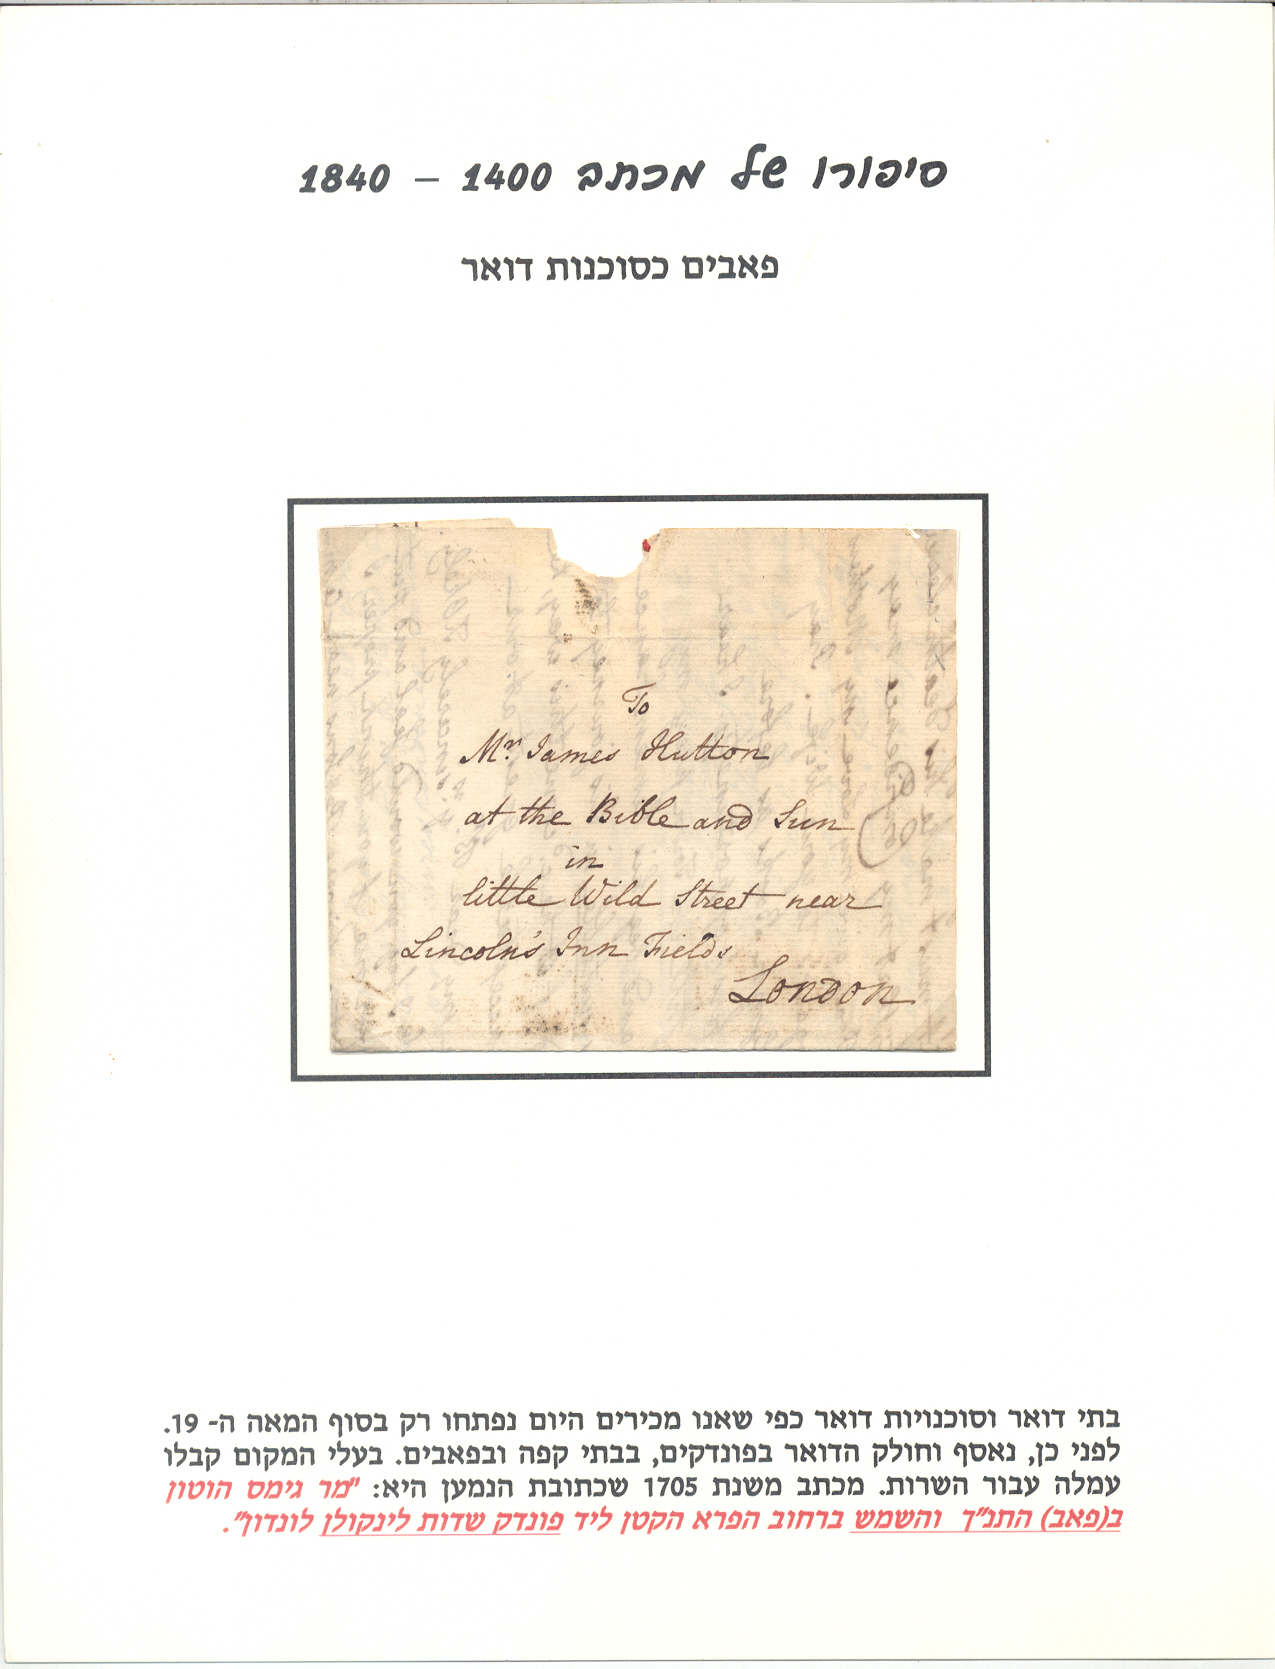 סיפורו של מכתב 1400 – 1840
פאבים כסוכנות דואר
To
Mr. James Hutton
at the Bible and Sun
in
little Wild Street near
Lincoln's Inn Fields
London
בתי דואר וסוכנויות דואר כפי שאנו מכירים היום נפתחו רק בסוף המאה ה- 19.
לפני כן, נאסף וחולק הדואר בפונדקים, בבתי קפה ובפאבים. בעלי המקום קבלו
עמלה עבור השרות. מכתב משנת 1705 שכתובת הנמען היא: "מר גימס הוטון
ב(פאב) התנ"ך והשמש ברחוב הפרא הקטן ליד פונדק שדות לינקולן לונדון".